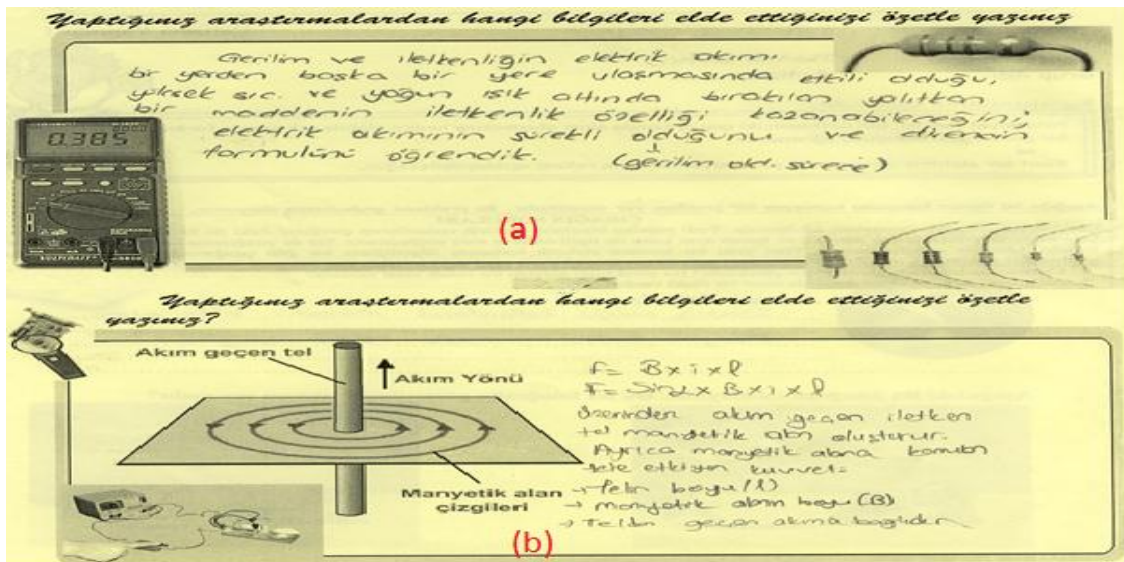 Yaptığınız araştırmalardan hangi bilgileri elde ettiğinizi özetle yazınız
Gerilim ve iletkenliğin elektrik akımı
bir yerden başka bir yere ulaşmasında etkili olduğu,
yüksek sıc. ve yoğun ışık altında bırakılan yalıtkan
bir maddenin iletkenlik özelliği kazanabileceğini,
elektrik akımının sürekli olduğunu ve direncin
formulünü öğrendik. (gerilim old. sürece)
0.385
(a)
Yaptığınız araştırmalardan hangi bilgileri elde ettiğinizi özetle
yazınız?
Akım geçen tel
Akım Yönü
Manyetik alan
çizgileri
F= B x i x l
F= Sinα x B x i x l
üzerinden akım geçen iletken
tel manyetik alan oluşturur.
Ayrıca manyetik alana konulan
tele etkiyen kuvvet=
→ Telin boyu (l)
→ manyetik alanın boyu (B)
→ Telden geçen akıma bağlıdır
(b)